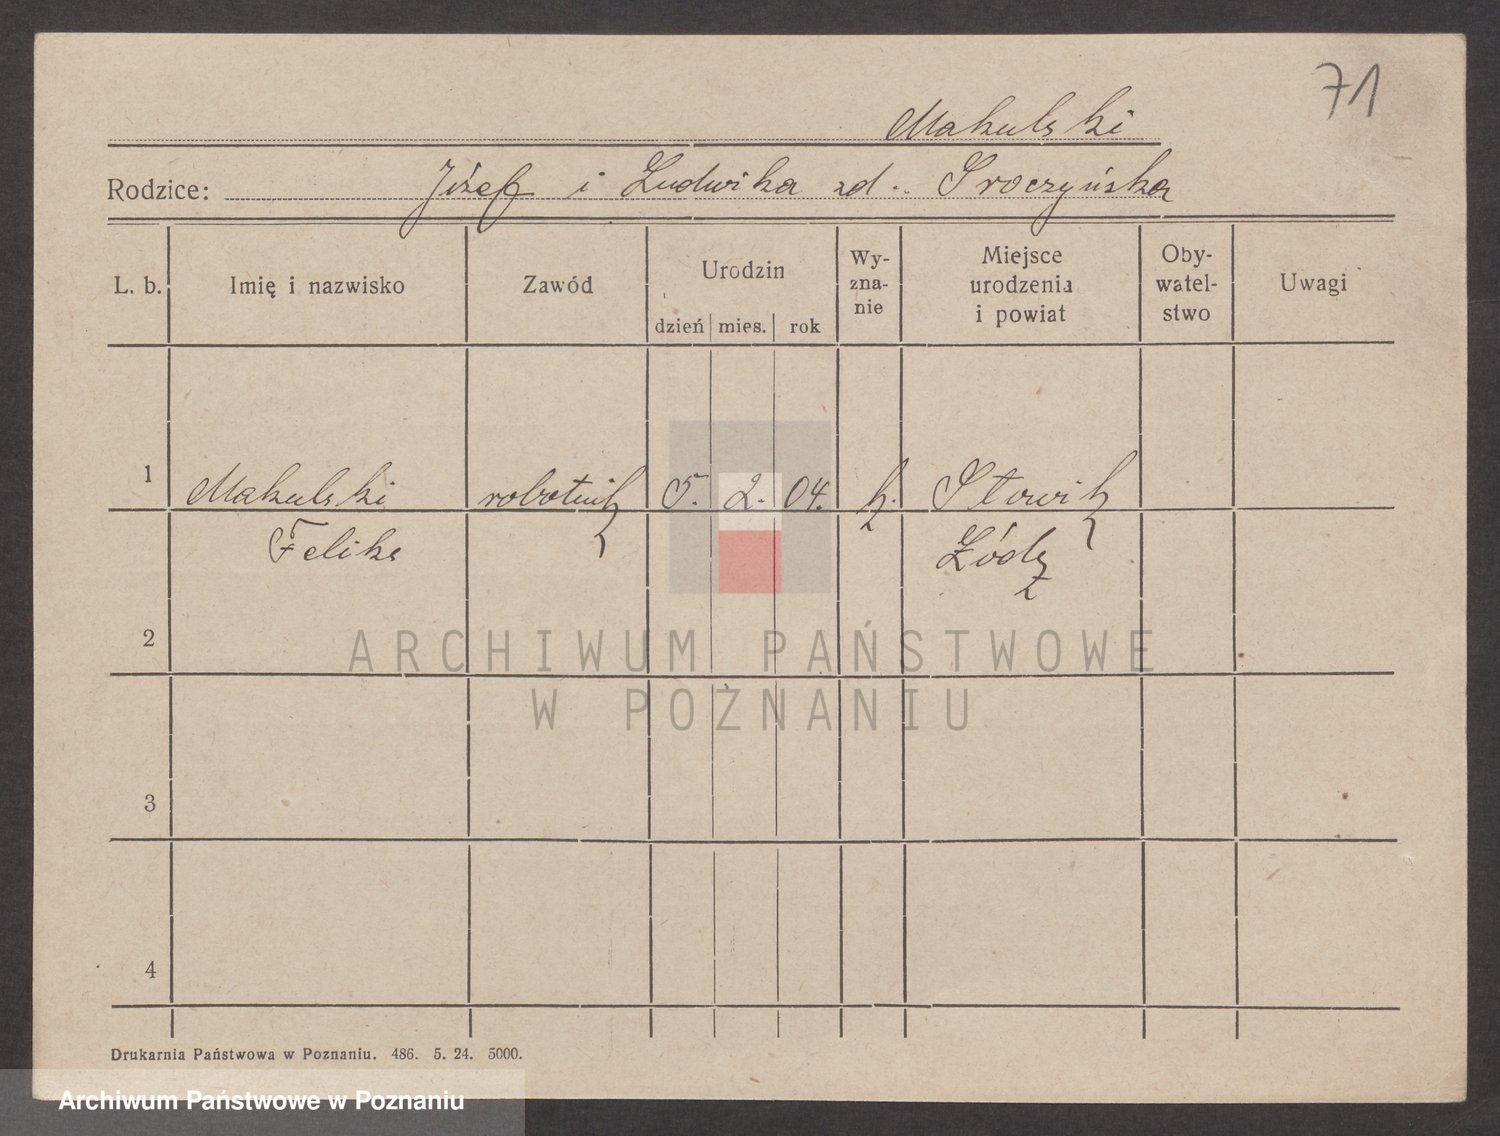 71
Makulski
Rodzice: Józef i Ludwika zd. Sroczyńska
L. b. Imię i nazwisko Zawód Urodzin dzień mies. rok Wy-zna-nie Miejsce urodzenia i powiat Oby-watel-stwo Uwagi
1 Makulski robotnik 5. 2. 04. k. Słowik
Feliks Łódź
2
ARCHIWUM PAŃSTWOWE
W POZNANIU
3
4
Drukarnia Państwowa w Poznaniu. 486. 5. 24. 5000.
Archiwum Państwowe w Poznaniu